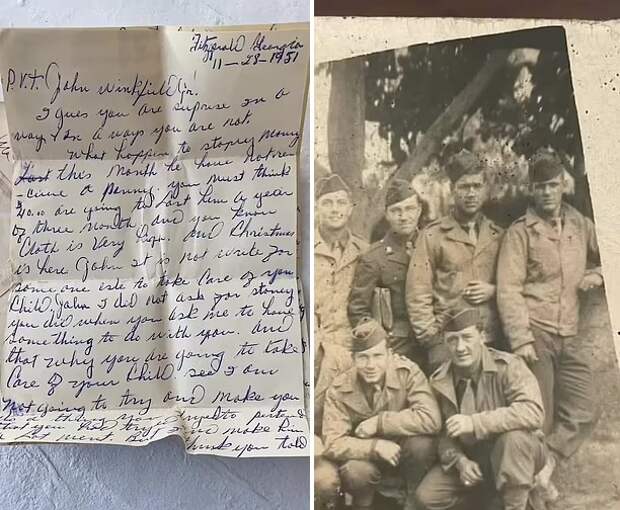 Fitzgerald Georgia
11-28-1951
P.V.T. John Winkfield Jr.
I gues you are suprise in a
way & in a ways you are not.
What happen to stoney money
Last this month he have not re-
ceive a penny. you must think
40.00 are going to last him a year
or three month, and you know
Cloth is Very and Christmas
is here John it is not write for
some one else to take Care of you
Child. John I did not ask for stoney
you did when you ask me to have
something to do with you. and
that why you are going to take
Care of your Child see I am
Not going to try and make you
make him
But I think you told